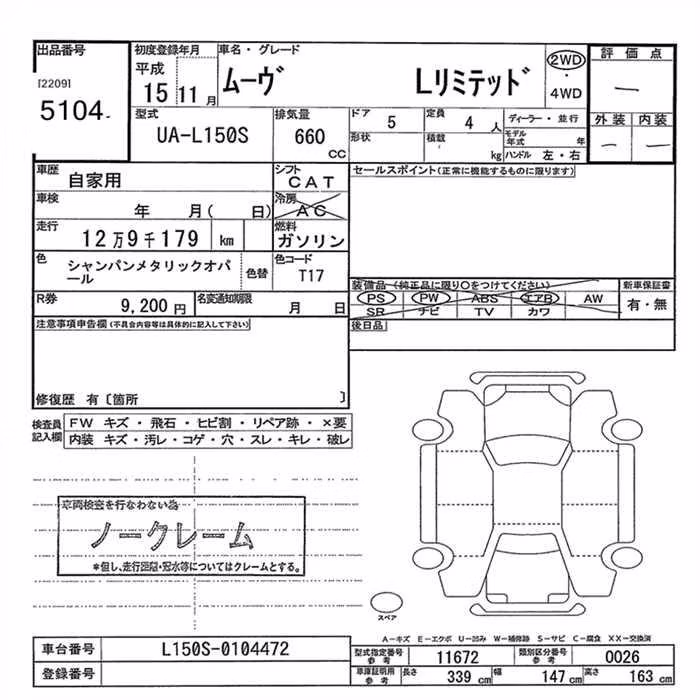 出品番号
[2209]
5104
初度登録年月
平成
15 11月
車名・グレード
ムーヴ Lリミテッド
2WD
・
4WD
評価点
—
外装 内装
— —
型式
UA-L150S
排気量
660
CC
ドア 5
定員 4 人
形状
積載 kg
ディーラー・並行
モデル年式 年
ハンドル 左・右
車歴 自家用
シフト CAT
セールスポイント(正常に機能するものに限ります)
車検 年 月( 日)
冷房 AC
走行 12万9千179 km
燃料 ガソリン
色 シャンパンメタリックオパール
色替
色コード T17
装備品(純正品に限り○をつけてください)
PS PW ABS エアB AW
SR ナビ TV カワ
新車保証書
有・無
R券 9,200円
名変通知期限 月 日
後日品
注意事項申告欄(不具合内容等は具体的に記入して下さい)
修復歴 有〔箇所 〕
検査員記入欄
FW キズ・飛石・ヒビ割・リペア跡・×要
内装 キズ・汚レ・コゲ・穴・スレ・キレ・破レ
車両検査を行なわない為
ノークレーム
*但し、走行距離・冠水等についてはクレームとする。
スペア
A-キズ E-エクボ U-凹み W-補修跡 S-サビ C-腐食 XX-交換済
車台番号 L150S-0104472
登録番号
型式指定番号参考 11672
類別区分番号参考 0026
車庫証明用参考 長さ 339cm 幅 147cm 高さ 163cm